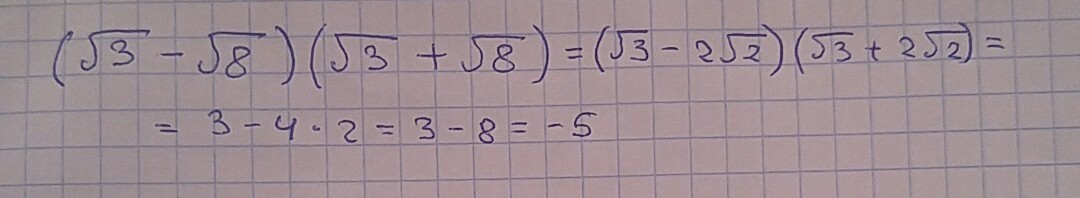 (√3 - √8)(√3 + √8) = (√3 - 2√2)(√3 + 2√2) =
= 3 - 4 · 2 = 3 - 8 = -5